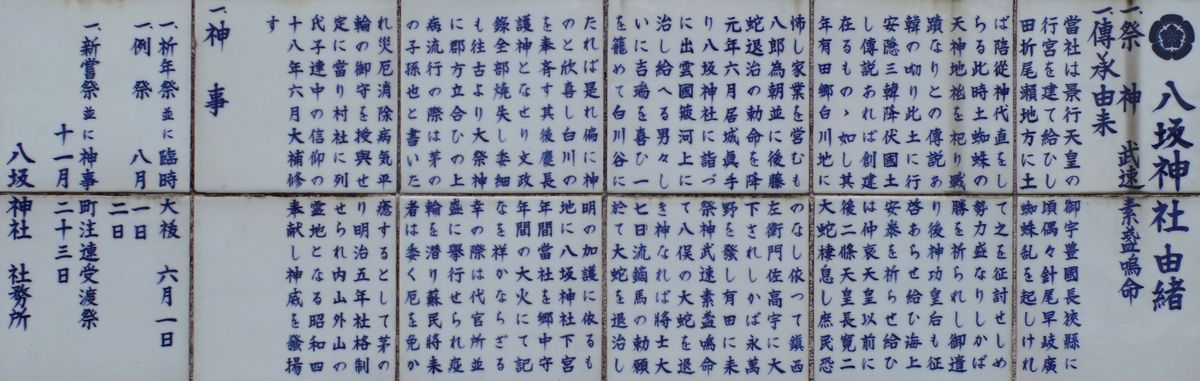 八坂神社由緒
一、祭神 武速素盞嗚命
一、傳承由来
當社は景行天皇の御宇豊國長狹縣に
行宮を建て給ひし頃偶々針尾早岐廣
田折尾瀬地方に土蜘蛛乱を起しけれ
ば陪從神代直をして之を征討せしめ
らる此時土蜘蛛の勢力盛なりしかば
天神地祗を祀り戦勝を祈られし御遺
蹟なりとの傳説あり後神功皇后も征
韓の砌り此土に行啓あらせ給ひ海上
安隠三韓降伏國土安泰を祈らせ給ひ
し傳説あれば創建は仲哀天皇以前に
在るものゝ如し其後二條天皇長寛二
年有田郷白川池に大蛇棲息し庶民恐
怖し家業を営むものなし依つて鎮西
八郎為朝並に後藤左衛門佐高宇に大
蛇退治の勅命を降下されしかば永萬
元年六月居城眞手野を發し有田に来
り八坂神社に詣づ祭神武速素盞嗚命
に出雲國簸河上にて八俣の大蛇を退
治し給へる男々しき神なれば將士大
いに吉瑞を喜び一七日流鏑馬の勅願
を籠めて白川谷に於て大蛇を退治し
たれば是れ偏に神明の加護に依るも
のと欣喜し白川の地に八坂神社下宮
を奉斉す其後慶長年間當社を郷中守
護神となせり文政年間の大火にて記
錄全部焼失し委細なを祥かならざる
も往古より大祭神幸の際は代官所並
に郡方立合ひの上盛に擧行せられ疫
病流行の際は茅の輪を潜り蘇民將来
の子孫也と書いた者は委く厄を免か
れ災厄消除病気平癒するとして茅の
輪の御守を授與せり明治五年社格制
定に當り村社に列せられ内山外山の
氏子連中の信仰の霊地となる昭和四
十八年六月大補修奉献し神威を發揚
す
一、神事
一、祈年祭並に臨時大祓 六月一日
一、例祭 八月一日
二日
一、新嘗祭並に神事町注連受渡祭
十一月二十三日
八坂神社 社務所